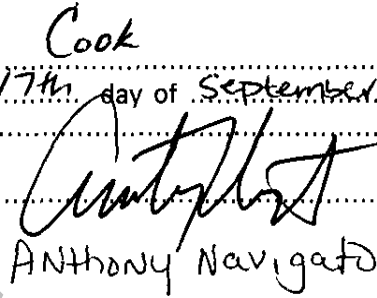 Cook
17th day of September
ANthony Navigato